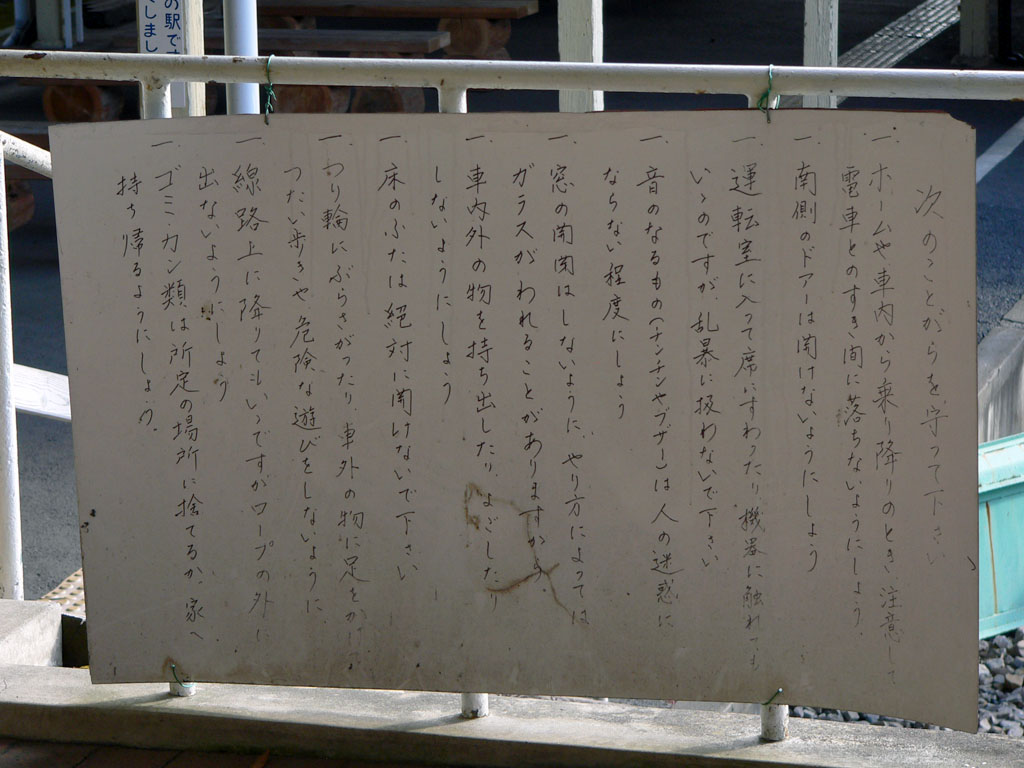 の駅で
でしまし
次のことがらを守って下さい
一. ホームや車内から乗り降りのとき注意して
電車とのすき間に落ちないようにしょう
一. 南側のドアーは開けないようにしよう
一. 運転室に入って席にすわったり機器に触れても
いゝのですが、乱暴に扱わないで下さい
一. 音のなるもの(チンチンやブザー)は人の迷惑に
ならない程度にしょう
一. 窓の開閉はしないように、やり方によっては
ガラスがわれることがありますから
一. 車内外の物を持ち出したり、よごしたり
しないようにしよう
一. 床のふたは絶対に開けないで下さい
一. つり輪にぶらさがったり、車外の物に足をかけて
つたい歩きや危険な遊びをしないように
一. 線路上に降りてもいゝですがロープの外に
出ないようにしよう
一. ゴミ・カン類は所定の場所に捨てるか、家へ
持ち帰るようにしょう。